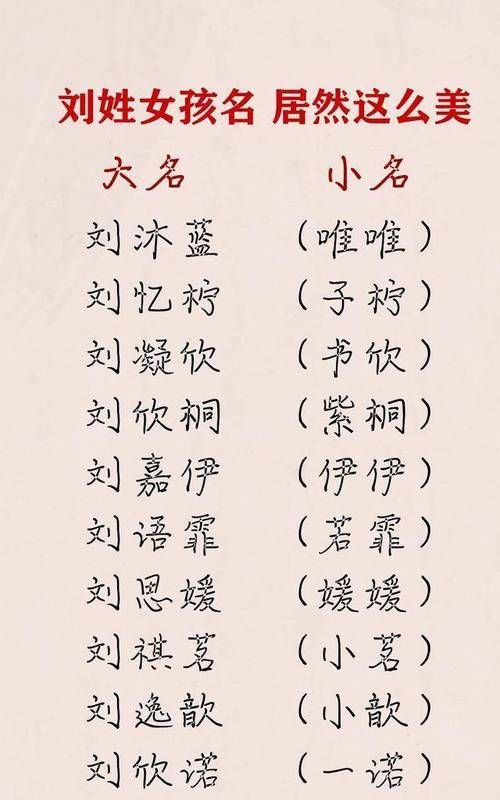 刘姓女孩名 居然这么美
大名 小名
刘沐蓝 （唯唯）
刘忆柠 （子柠）
刘凝欣 （书欣）
刘欣桐 （紫桐）
刘嘉伊 （伊伊）
刘语霏 （若霏）
刘思媛 （媛媛）
刘祺茗 （小茗）
刘逸歆 （小歆）
刘欣诺 （一诺）